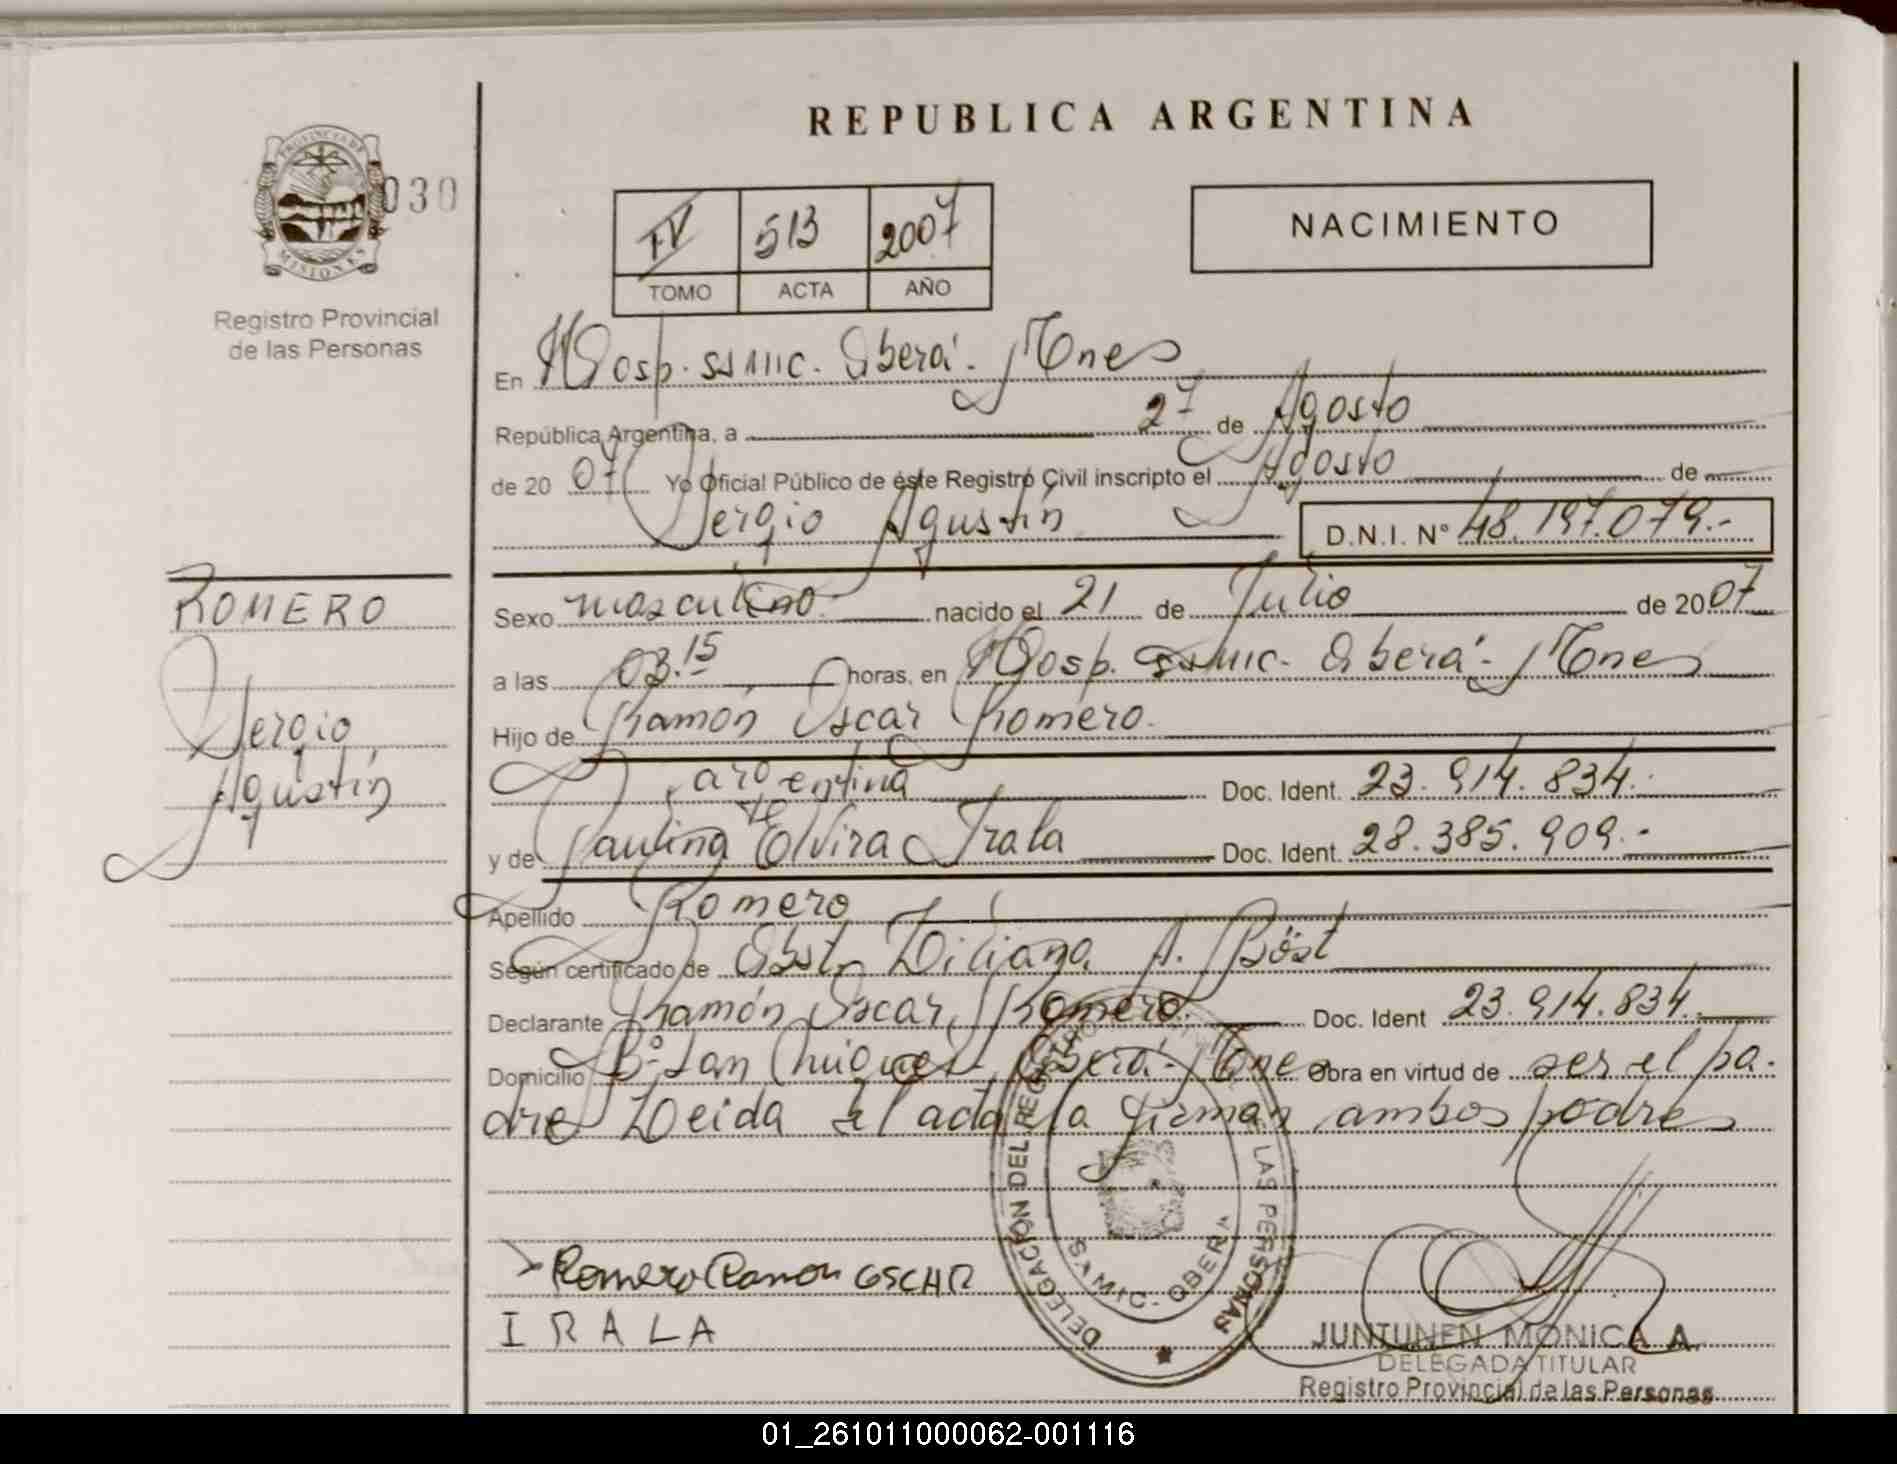 REPUBLICA ARGENTINA
PROVINCIA DE
MISIONES
030
Registro Provincial
de las Personas
IV 513 2007
TOMO ACTA AÑO
NACIMIENTO
En Hosp. SSMIC. Oberá - Mnes
República Argentina, a 27 de Agosto
de 2007 Yo Oficial Público de éste Registro Civil inscripto el Agosto de
Sergio Agustín D.N.I. Nº 48.197.079.-
ROMERO
Sergio
Agustín
Sexo masculino nacido el 21 de Julio de 2007
a las 03.15 horas, en Hosp. SSMIC - Oberá - Mnes
Hijo de Ramón Oscar Romero.
argentina Doc. Ident. 23.914.834.-
y de Paulina Elvira Irala Doc. Ident. 28.385.909.-
Apellido Romero
Según certificado de Obst. Liliana A. Böst
Declarante Ramón Oscar Romero. Doc. Ident 23.914.834.
Domicilio Bº San Miguel Oberá - Mnes Obra en virtud de ser el pa-
dre Leida el acta la firman ambos padres
Romero Ramon OSCAR
IRALA
DELEGACIÓN DEL REGISTRO DE LAS PERSONAS
SAMIC - OBERA
JUNTUNEN MONICA A.
DELEGADA TITULAR
Registro Provincial de las Personas
01_261011000062-001116